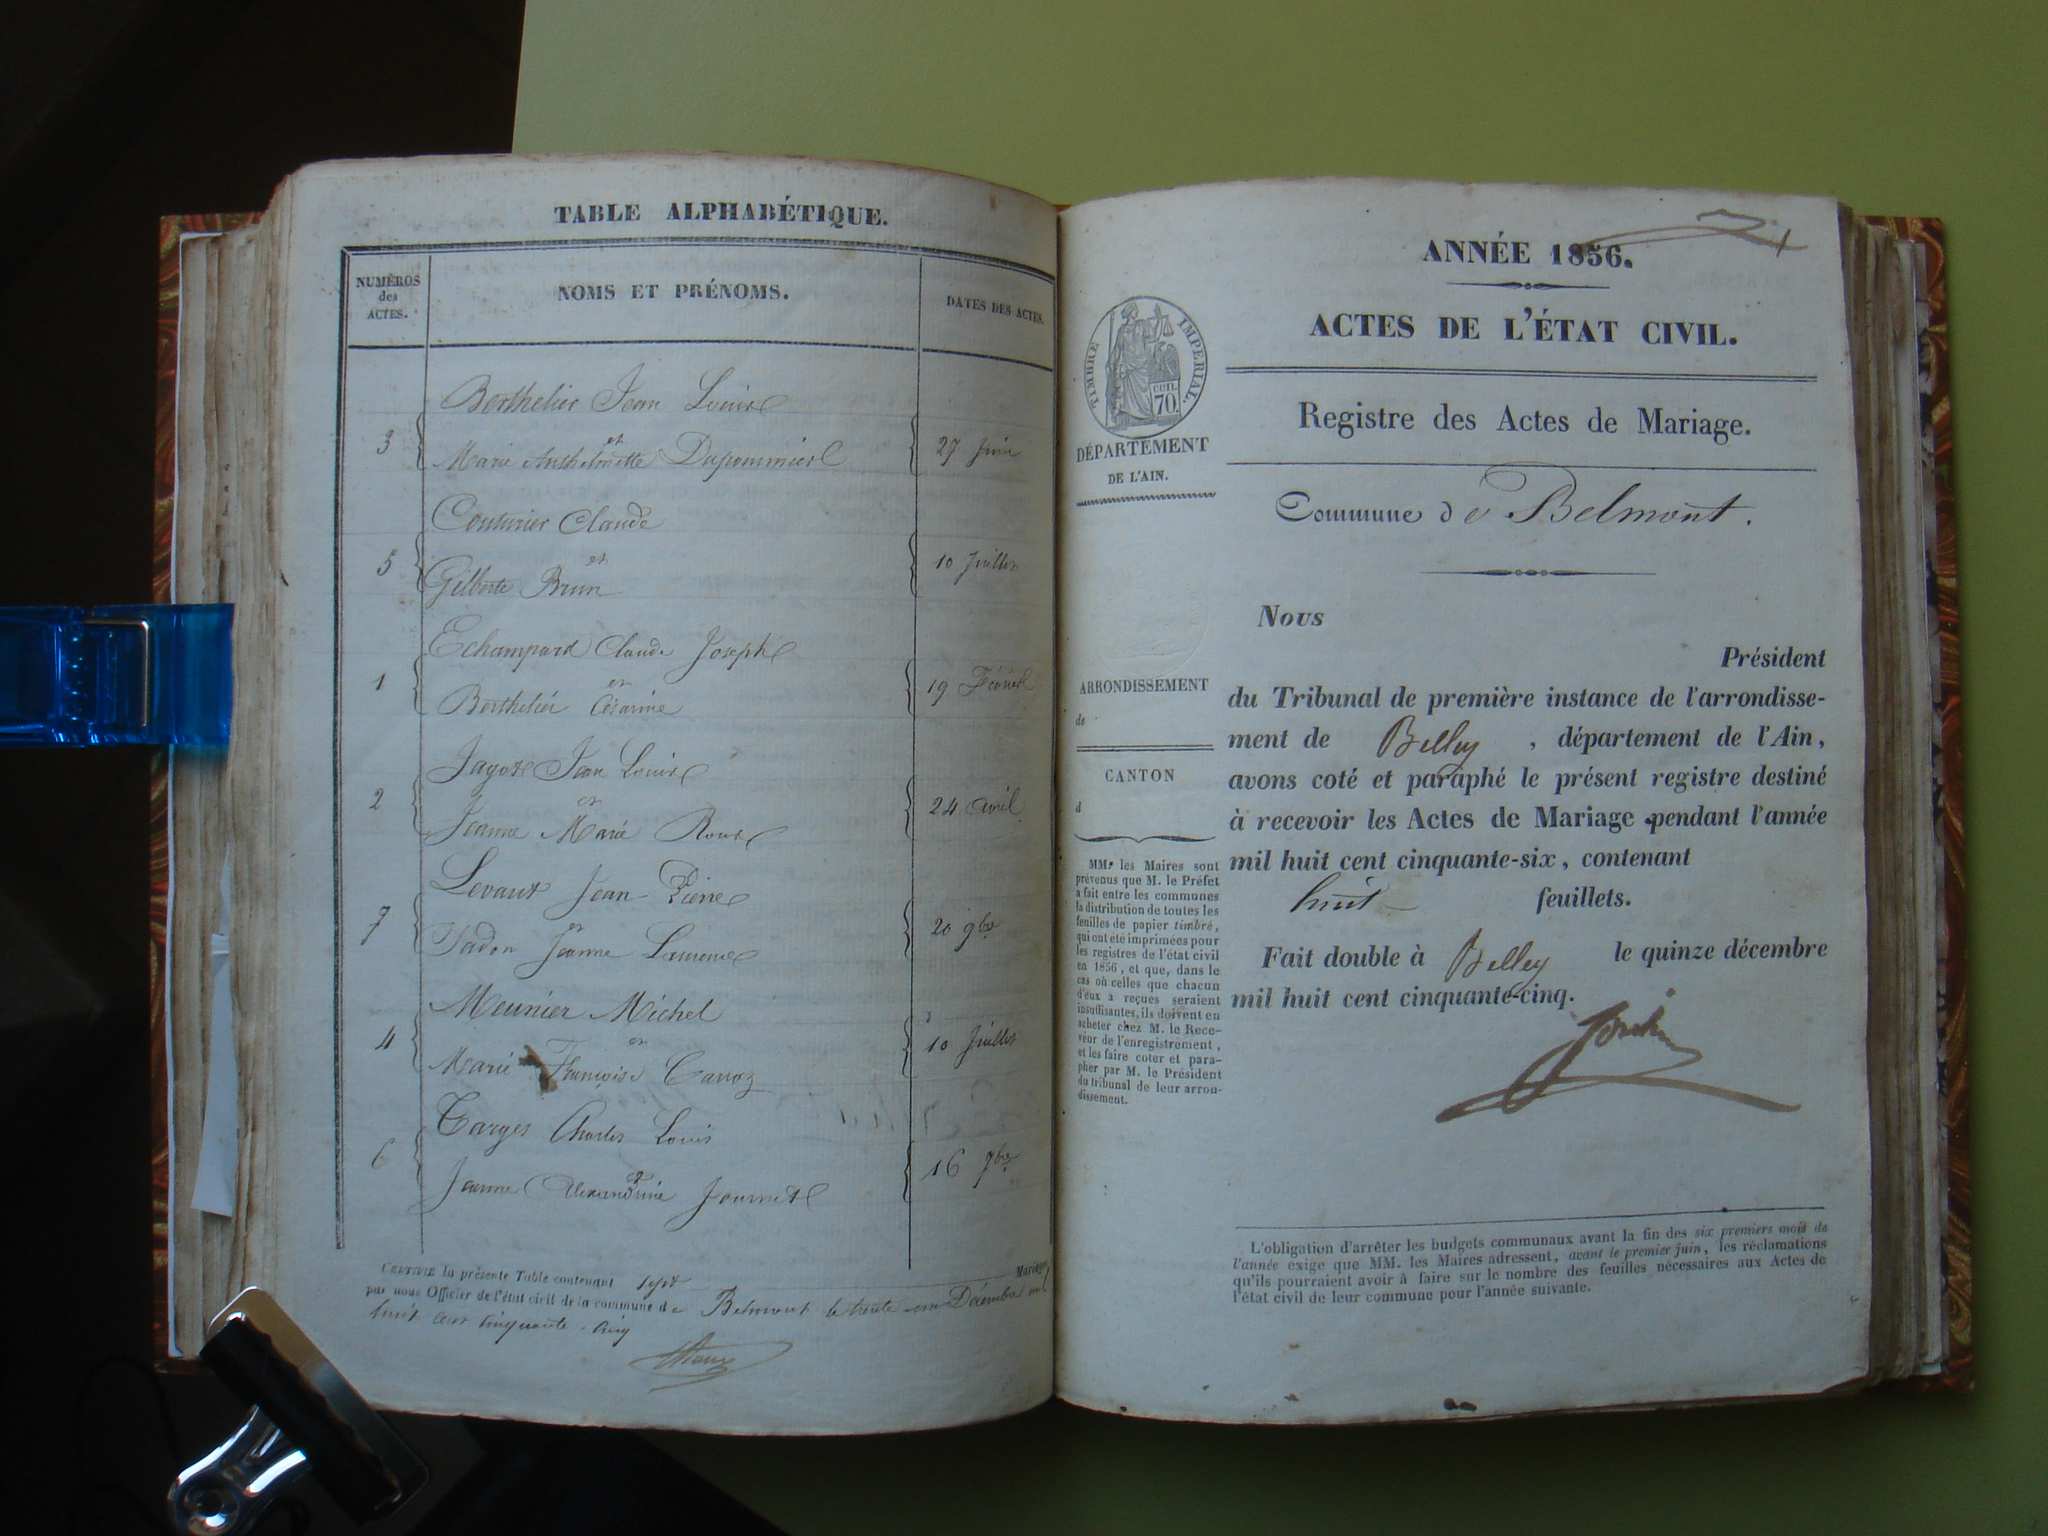 TABLE ALPHABÉTIQUE.
NUMÉROS
des
ACTES.
NOMS ET PRÉNOMS.
DATES DES ACTES.
Berthelier Jean Louis
et
3 Marie Anthelmette Dupommier 27 Juin
Couturier Claude
et
5 Gilberte Brun 10 Juillet
Echampard Claude Joseph
et
1 Berthelier Césarine 19 Février
Jayot Jean Louis
et
2 Jeanne Marie Roux 24 avril
Levaux Jean Pierre
et
7 Jadon Jeanne Laurence 20 9bre
Meunier Michel
et
4 Marie Françoise Carroz 10 Juillet
Targes Charles Louis
et
6 Jeanne Alexandrine Journet 16 9bre
CERTIFIÉ la présente Table contenant sept Mariages
par nous Officier de l'état civil de la commune de Belmont le trente un Décembre mil
huit cent cinquante-cinq
ANNÉE 1856.
ACTES DE L'ÉTAT CIVIL.
TIMBRE IMPERIAL.
CENT.
70.
DÉPARTEMENT
DE L'AIN.
Registre des Actes de Mariage.
Commune de Belmont.
Nous
Président
du Tribunal de première instance de l'arrondisse-
ment de Belley, département de l'Ain,
avons coté et paraphé le présent registre destiné
à recevoir les Actes de Mariage pendant l'année
mil huit cent cinquante-six, contenant
huit feuillets.
Fait double à Belley le quinze décembre
mil huit cent cinquante-cinq.
ARRONDISSEMENT
de
CANTON
d
MM. les Maires sont
prévenus que M. le Préfet
a fait entre les communes
la distribution de toutes les
feuilles de papier timbré,
qui ont été imprimées pour
les registres de l'état civil
en 1856, et que, dans le
cas où celles que chacun
d'eux a reçues seraient
insuffisantes, ils doivent en
acheter chez M. le Rece-
veur de l'enregistrement,
et les faire coter et para-
pher par M. le Président
du tribunal de leur arron-
dissement.
L'obligation d'arrêter les budgets communaux avant la fin des six premiers mois de
l'année exige que MM. les Maires adressent, avant le premier juin, les réclamations
qu'ils pourraient avoir à faire sur le nombre des feuilles nécessaires aux Actes de
l'état civil de leur commune pour l'année suivante.